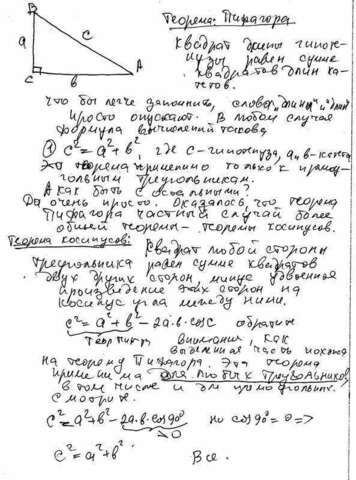 B
Теорема Пифагора
a
c
C
b
A
Квадрат длины гипоте-
нузы равен сумме
квадратов длин ка-
тетов.
Что бы легче запомнить, слова "длины" и "длин"
просто опускают. В любом случае
формула вычислений такова
① c²=a²+b² где c-гипотенуза, a и b-катеты
Эта теорема применимо только к прямо-
гольным треугольникам.
А как быть с остальными?
Да очень просто. Оказалось, что теорема
Пифагора частный случай более
общей теоремы - теоремы косинусов.
Теорема косинусов: Квадрат любой стороны
треугольника равен сумме квадратов
двух других сторон минус удвоенное
произведение этих сторон на
косинус угла между ними.
c²=a²+b²-2a·b·cosC обратите
внимание, как
выделенная часть похожа
на теорему Пифагора. Эта теорема
применима для любых треугольников,
в том числе и для прямоугольных.
Смотрите.
c²=a²+b²-2a·b·cos90° но cos90°=0 =>
0
c²=a²+b²
Все.